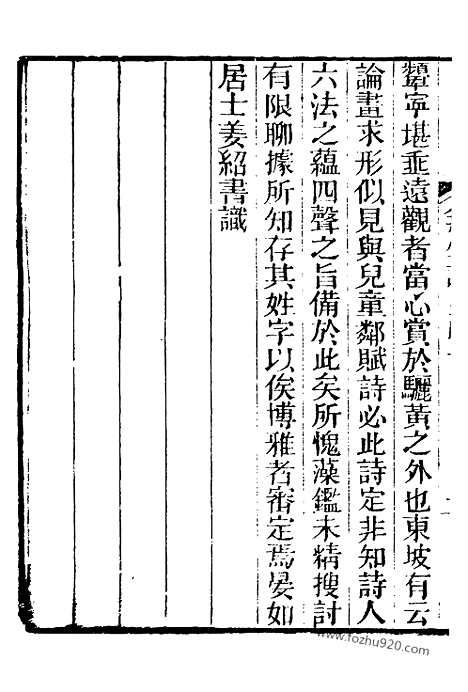 顰寧堪垂遠觀者當心賞於驪黃之外也東坡有云
論畫求形似見與兒童鄰賦詩必此詩定非知詩人
六法之蘊四聲之旨備於此矣所愧藻鑑未精搜討
有限聊據所知存其姓字以俟博雅者審定焉晏如
居士姜紹書識
www.fozhu920.com